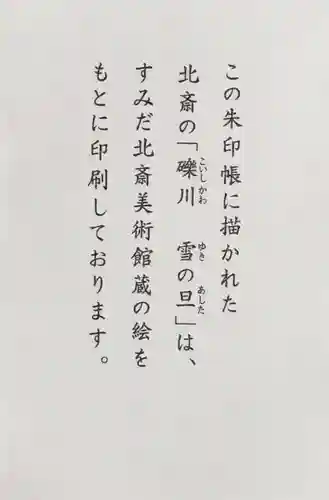 この朱印帳に描かれた
北斎の「礫川　雪の旦」は、
こいしかわ　ゆき　あした
すみだ北斎美術館蔵の絵を
もとに印刷しております。